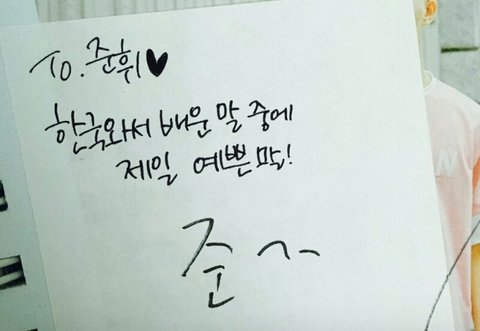 To. 준휘♥
한국와서 배운 말 중에
제일 예쁜 말!
준~